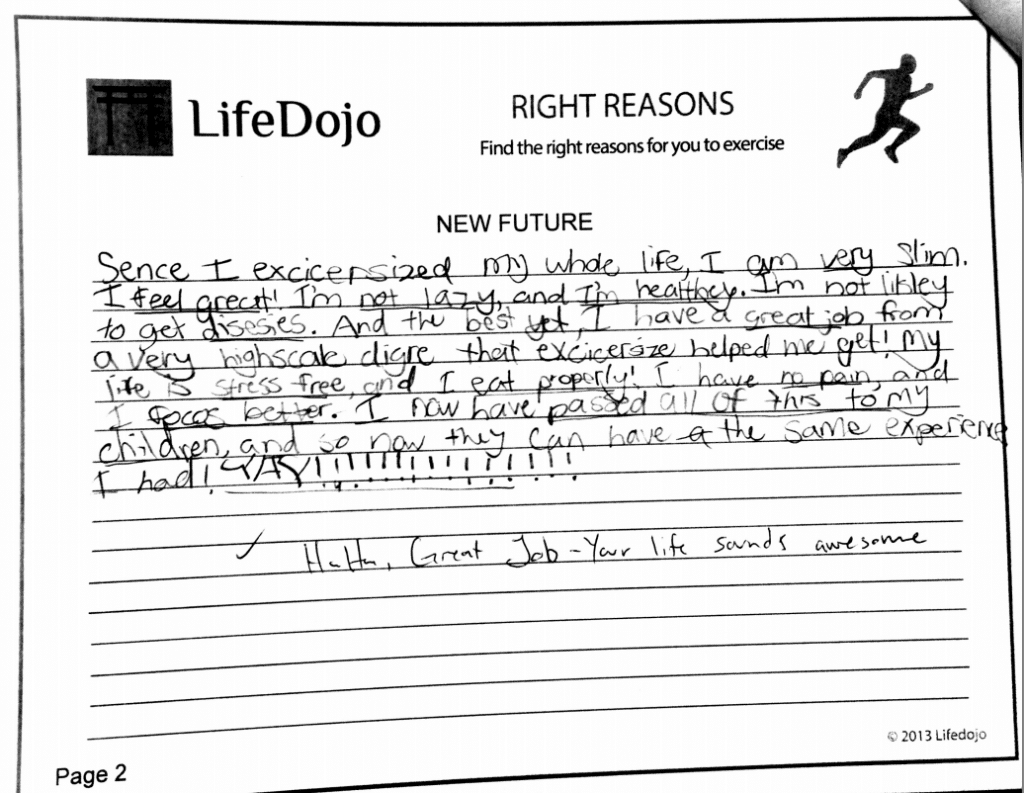 LifeDojo
RIGHT REASONS
Find the right reasons for you to exercise
NEW FUTURE
Sence I excicersized my whole life, I am very slim.
I feel great! I'm not lazy, and I'm healthey. I'm not likley
to get disesies. And the best yet, I have a great job from
a very highscale digre that excicersize helped me get! My
life is stress free, and I eat properly! I have no pain, and
I focos better. I now have passed all of this to my
children, and so now they can have the same experience
I had! YAY!!!!!!!!!!!!!!!!
✓ Great Job - Your life sounds awesome
© 2013 Lifedojo
Page 2